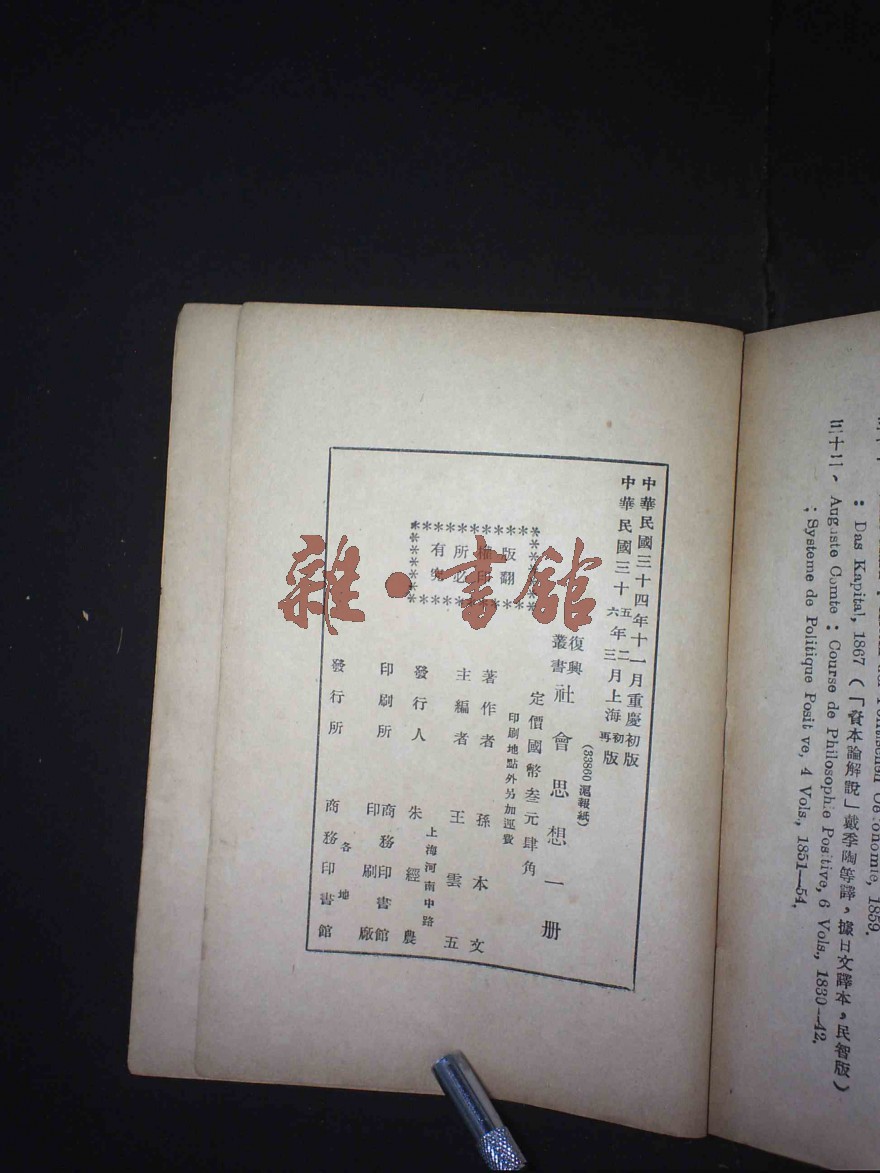 : Das Kapital, 1867 (「資本論解說」戴季陶等譯,據日文譯本,民智版)
Auguste Comte : Course de Philosophie Positive, 6 Vols., 1830—42.
; Systeme de Politique Positive, 4 Vols., 1851—54.
中華民國三十四年十一月重慶初版
中華民國三十五年二月上海初版
六 三 再
(33860 滬報紙)
復興叢書 社會思想一册
定價國幣叁元肆角
印刷地點外另加運費
著作者 孫本文
主編者 王雲五
上海河南中路
發行人 朱經農
印刷所 商務印書館印刷廠
各地
發行所 商務印書館
版權所有
翻印必究
雜·書館